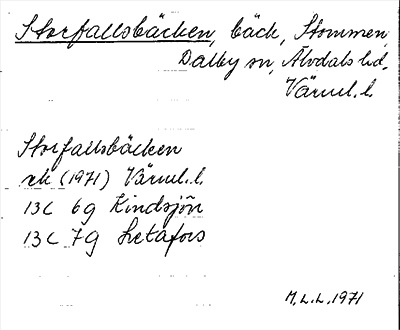 Storfallsbäcken, bäck, Stommen,
Dalby sn, Älvdals hd,
Värml. l.
Storfallsbäcken
rk (1971) Värml. l.
13C 6g Kindsjön
13C 7g Letafors
M.L.L. 1971